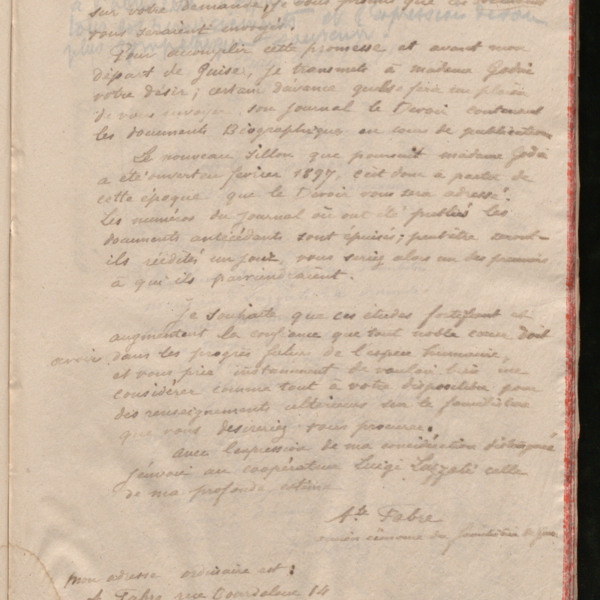 sur votre demande, je vous
vous seraient envoyés.
Pour accomplir cette promesse et avant mon
départ de Guise, je transmets à madame Godin
votre désir; certain d'avance qu'elle se fera un plaisir
de vous envoyer son journal le Devoir contenant
les documents Biographiques en cours de publication
Le nouveau sillon que poursuit madame Godin
a été ouvert en février 1897, c'est donc à partir de
cette époque que le Devoir vous sera adressé.
Les numéros du journal où ont été publiés les
documents antécédents sont épuisés; peut-être seront-
ils réédités un jour, vous seriez alors un des premiers
à qui ils parviendraient.
Je souhaite que ces études fortifient et
augmentent la confiance que tout noble cœur doit
avoir dans les progrès futurs de l'espèce humaine,
et vous prie instamment de vouloir bien me
considérer comme tout à votre disposition pour
des renseignements ultérieurs sur le familistère
que vous desireriez vous procurer.
Avec l'expression de ma considération distinguée
j'envoie au coopérateur Luigi Luzzati celle
de ma profonde estime
Fabre
du familistère de Guise
Mon adresse ordinaire est:
A. Fabre, rue Bourdaloue 14